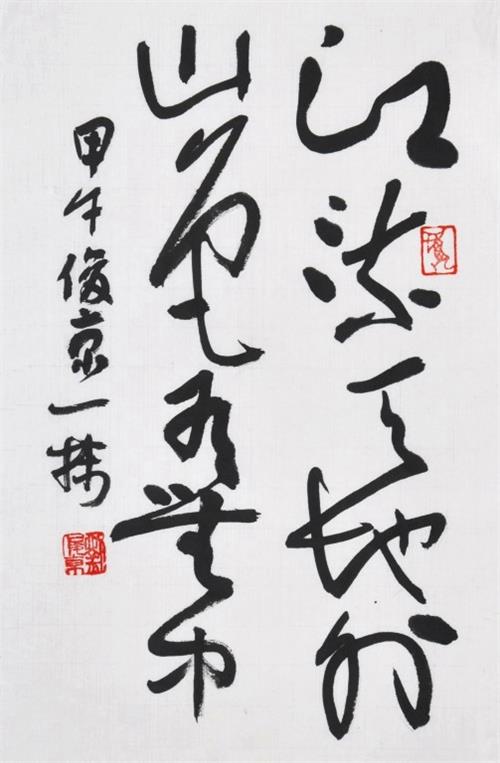 江流天地外
山色有無中
甲午俊京一挥